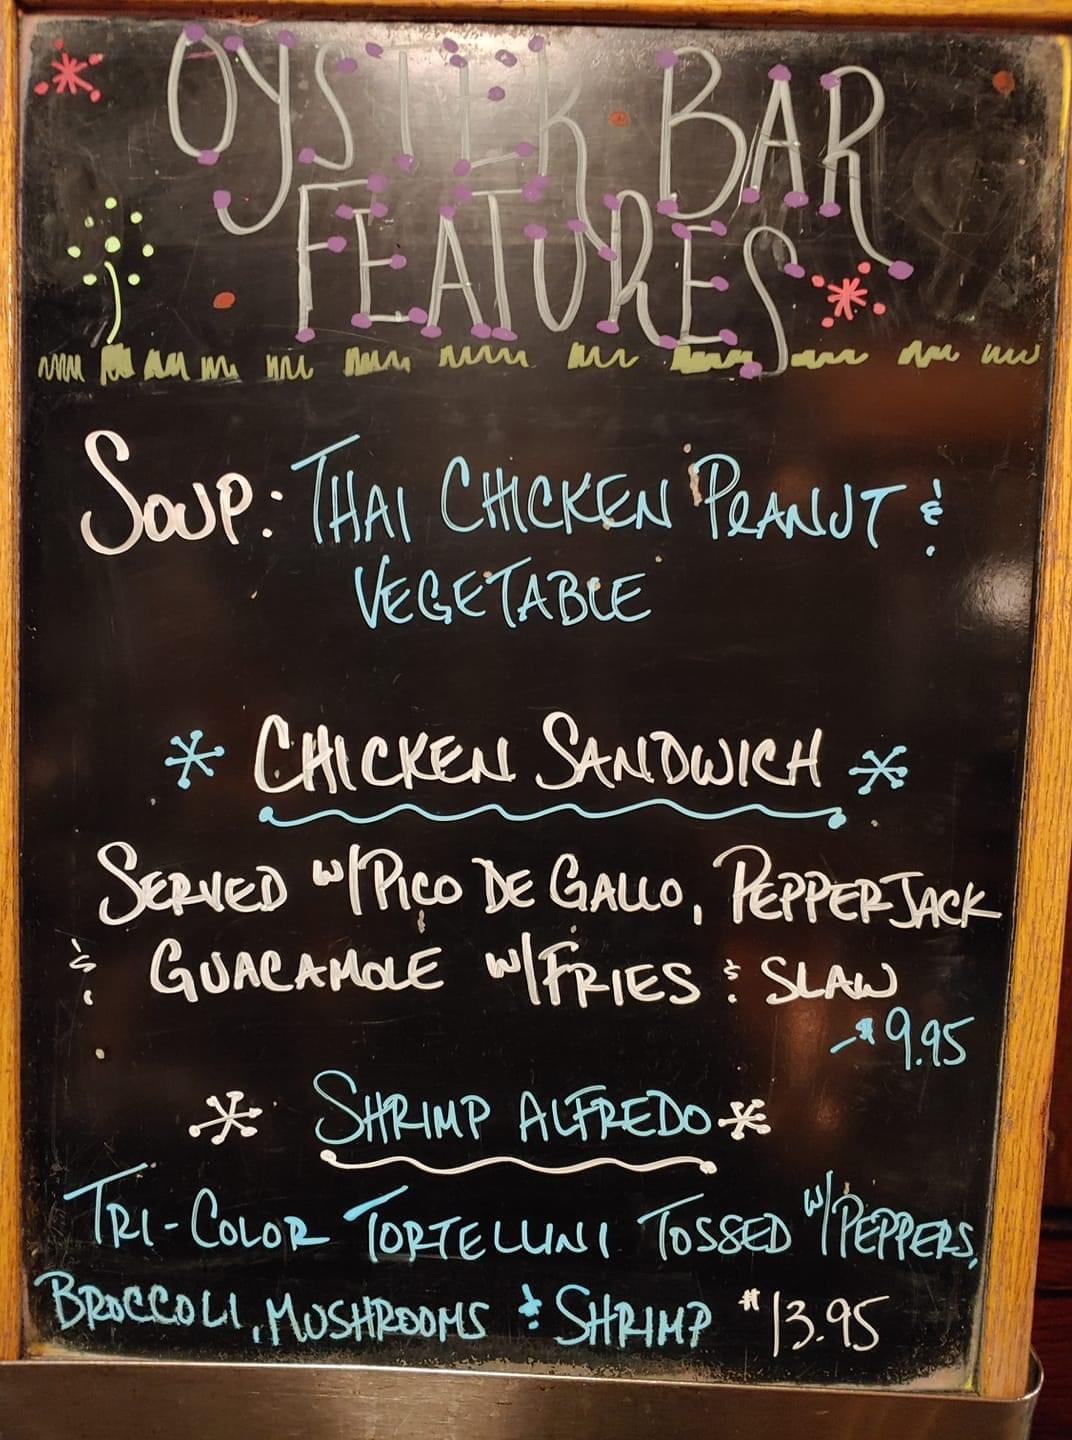 OYSTER BAR
FEATURES
SOUP: THAI CHICKEN PEANUT &
VEGETABLE
CHICKEN SANDWICH
SERVED W/PICO DE GALLO, PEPPERJACK
& GUACAMOLE W/FRIES & SLAW
-$9.95
SHRIMP ALFREDO
TRI-COLOR TORTELLINI TOSSED W/PEPPERS,
BROCCOLI, MUSHROOMS & SHRIMP $13.95